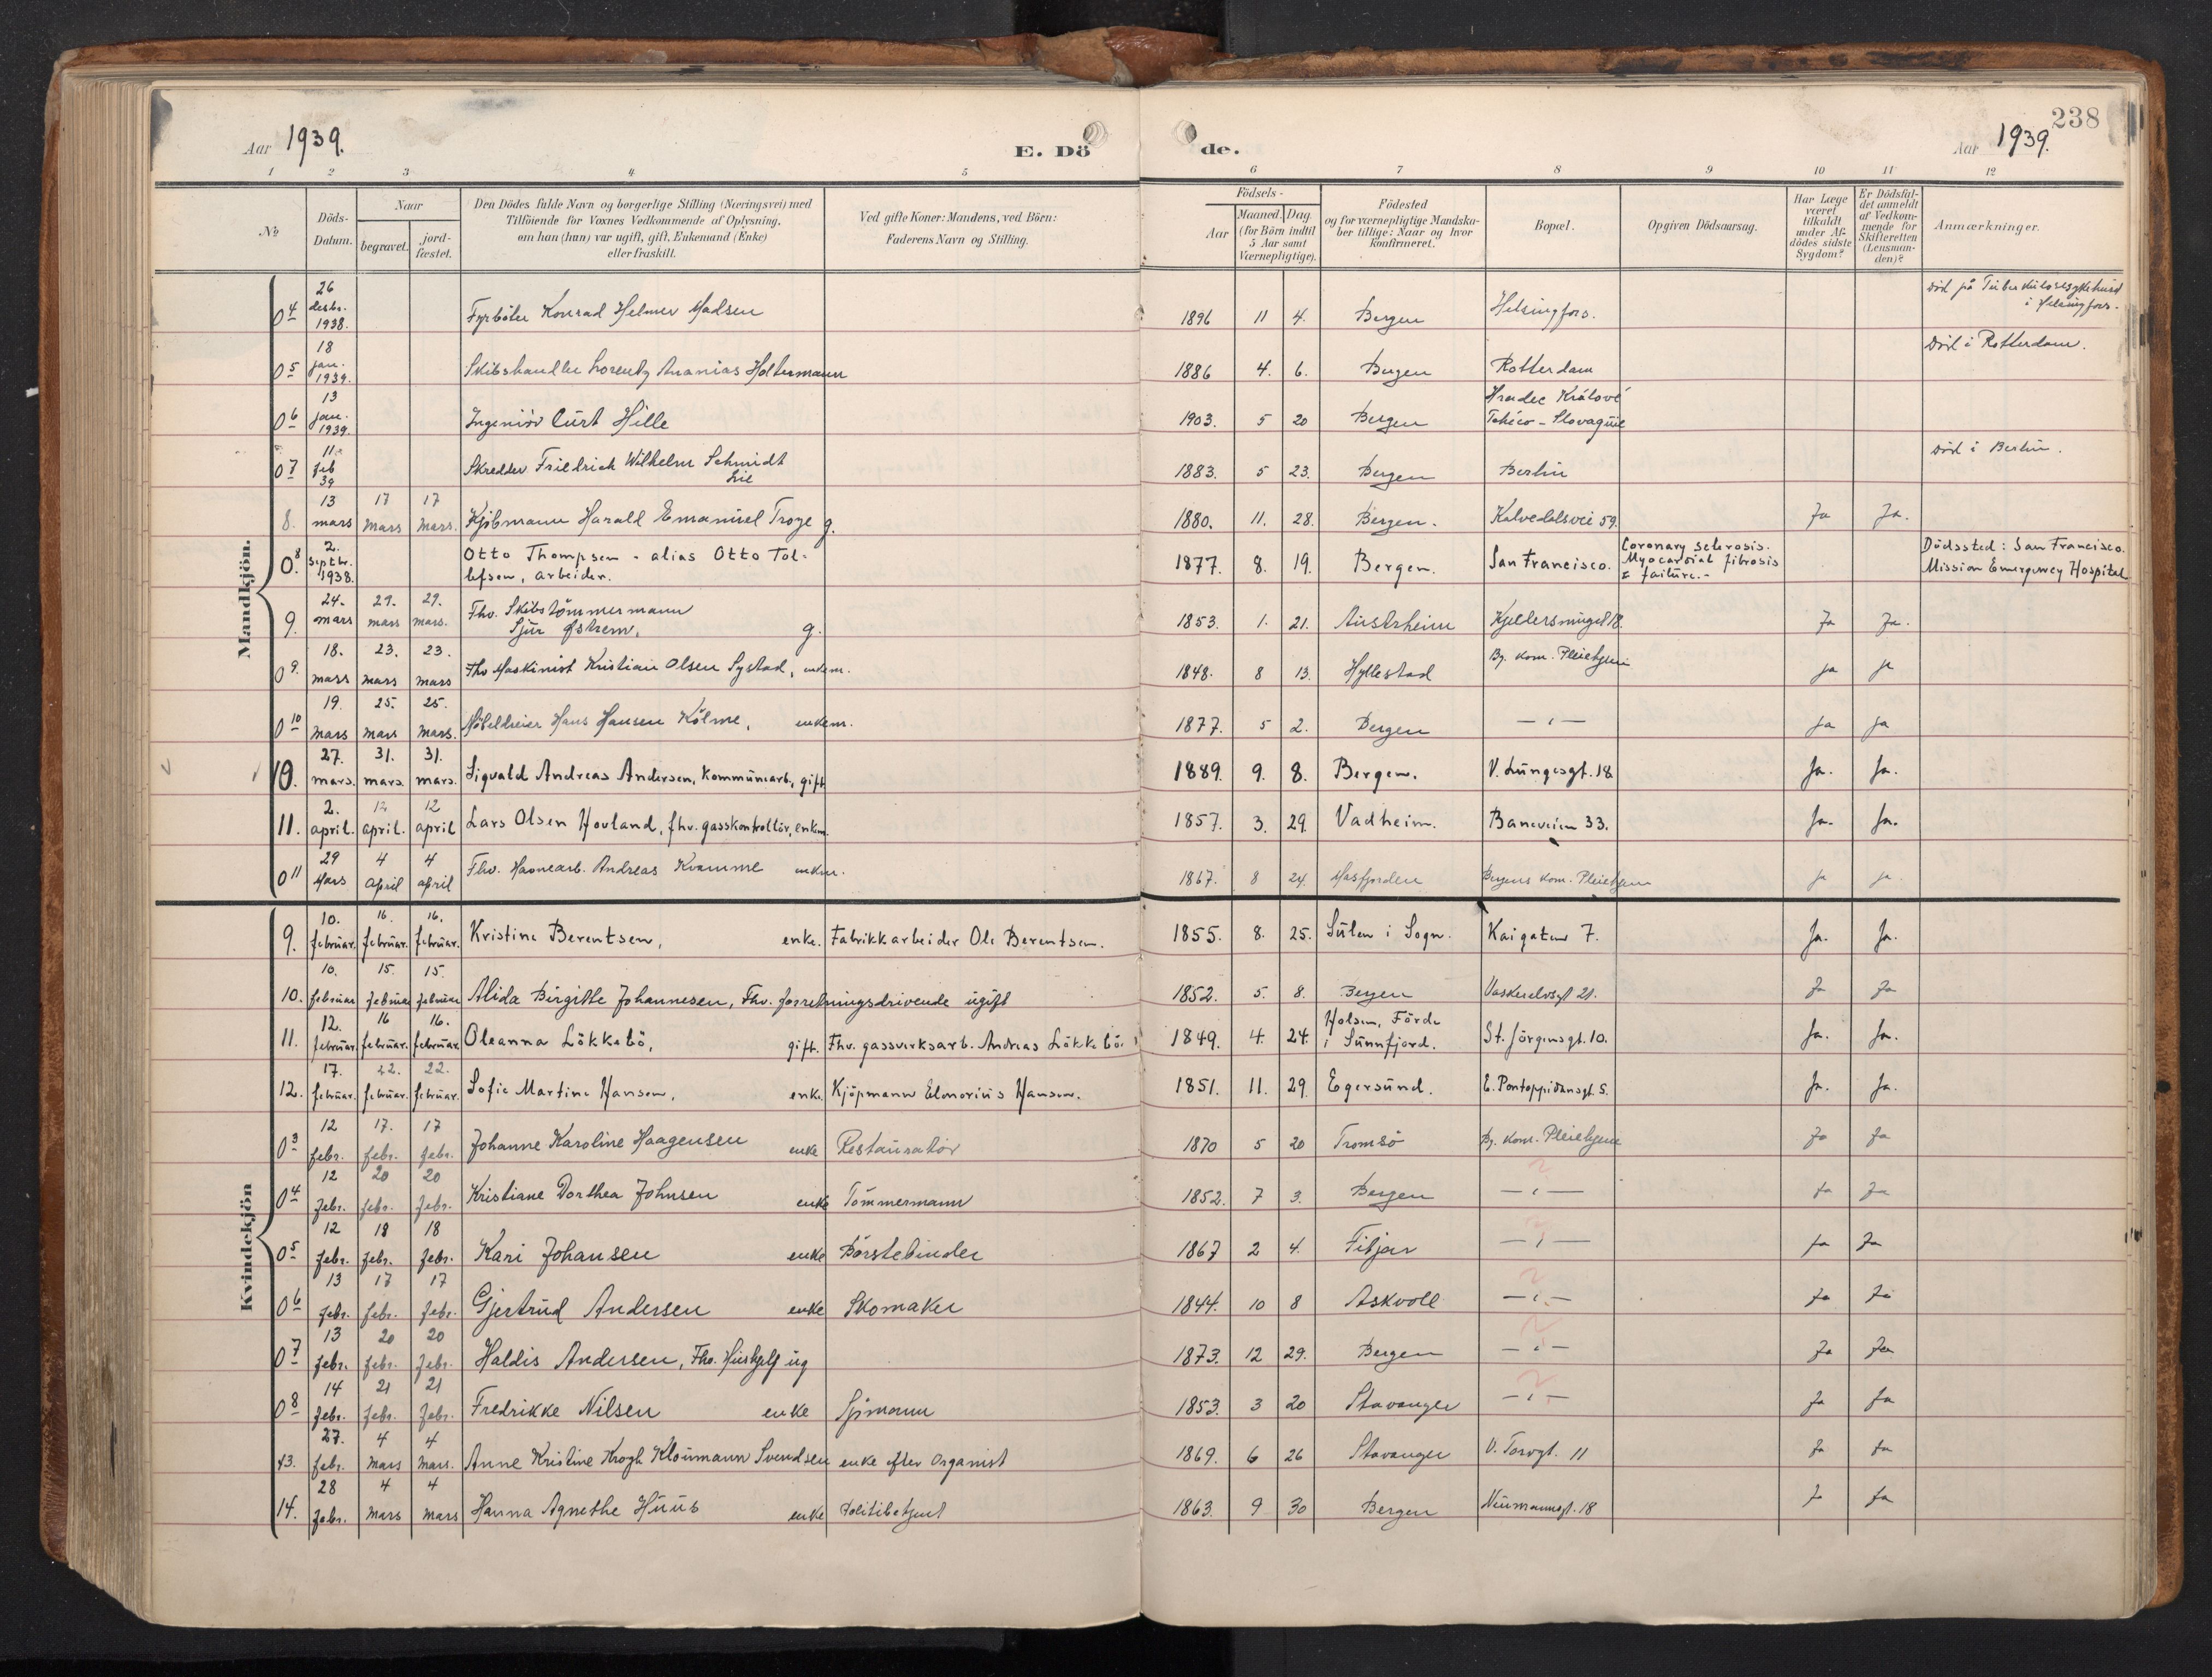 238
Aar 1939.
E. Dö de.
Aar 1939.
1 2 3 4 5 6 7 8 9 10 11 12
No
Döds-Datum.
Naar
begravet.
jord-fæstet.
Den Dödes fulde Navn og borgerlige Stilling (Næringsvei) med
Tilföiende for Voxnes Vedkommende af Oplysning,
om han (hun) var ugift, gift, Enkemand (Enke)
eller fraskilt.
Ved gifte Koner: Mandens, ved Börn:
Faderens Navn og Stilling.
Födsels-
Aar
Maaned. Dag.
(for Börn indtil
5 Aar samt
Værnepligtige).
Födested
og for værnepligtige Mandska-
ber tillige: Naar og hvor
konfirmeret.
Bopæl.
Opgiven Dödsaarsag.
Har Læge
været
tilkaldt
under Af-
dödes sidste
Sygdom?
Er Dödsfal-
det anmeldt
af Vedkom-
mende for
Skifteretten
(Lensman-
den)?
Anmærkninger.
Mandkjön.
04 26 desbr. 1938. Fyrböter Konrad Helmer Madsen 1896 11 4. Bergen Helsingfors. död på Tuberkulosesykehus i Helsingfors.
05 18 jan. 1939. Skibshandler Lorentz Ananias Holtermann 1886 4. 6. Bergen Rotterdam död i Rotterdam.
06 13 jan. 1939. Ingeniör Curt Hille 1903. 5 20 Bergen Hradec Králové Tchéco-Slovaquie
07 11 feb 39 Skredder Friedrich Wilhelm Schmidt Lie 1883. 5 23. Bergen Berlin död i Berlin.
8. 13 mars 17 mars 17 mars. Kjöbmann Harald Emanuel Troye g. 1880. 11. 28. Bergen. Kalvedalsvei 59. Ja Ja.
08. 2. septbr. 1938. Otto Thompsen - alias Otto Tol-
lefsen, arbeider. 1877. 8. 19. Bergen. San Francisco. Coronary sclerosis. Myocardial fibrosis & failure.- Dödssted: San Francisco. Mission Emergency Hospital
9. 24. mars 29. mars 29. mars. Fhv. Skibstömmermann
Sjur Østrem, g. 1853. 1. 21. Austrheim Kjellersmuget 18. Ja Ja.
09. 18. mars 23. mars 23. mars Fhv Maskinist Kristian Olsen Systad, enkem. 1848. 8 13. Hyllestad By. kom. Pleiehjem ja ja
010 19. mars 25. mars 25. mars. Möbeldreier Hans Hansen Kölme, enkem. 1877. 5 2. Bergen — " — Ja Ja
10. 27. mars. 31. mars. 31. mars. Sigvald Andreas Andersen, kommunearb., gift 1889. 9. 8. Bergen. V. Lungesgt. 18 Ja. Ja.
11. 2. april. 12 april. 12 april Lars Olsen Hovland, fhv. gasskontrollör, enkem. 1857. 3. 29. Vadheim. Baneveien 33. Ja. Ja.
011 29 Mars 4 april 4 april Fhv. Havnearb. Andreas Kvamme enkem. 1867. 8 24. Masfjorden Bergens Kom. Pleiehjem ja ja
Kvindekjön
9. 10. februar. 16. februar. 16. februar. Kristine Berentsen, enke. Fabrikkarbeider Ole Berentsen. 1855. 8. 25. Sulen i Sogn. Kaigaten 7. Ja. Ja.
10. 10. februar 15. februar 15. februar Alida Birgitte Johannesen, Fhv. forretningsdrivende ugift 1852. 5. 8. Bergen Vaskerelvsgt 21. Ja Ja
11. 12. februar. 16 februar. 16. februar. Oleanna Lökkebö, gift. Fhv. gassverksarb. Andreas Lökkebö. 1849. 4. 24. Holsen, Förde i Sunnfjord. St. Jörgensgt. 10. Ja. Ja.
12. 17. februar. 22. februar. 22. februar. Sofie Martine Hansen, enke. Kjöpmann Elenorius Hansen. 1851. 11. 29. Egersund. E. Pontoppidansgt. 5. Ja. Ja.
03 12 febr. 17. febr. 17 febr. Johanne Karoline Haagensen enke Restauratör 1870 5 20 Tromsö By. Kom. Pleiehjem Ja Ja
04 12 febr. 20 febr. 20 febr. Kristiane Dorthea Johnsen enke Tömmermann 1852. 7 3. Bergen — " — Ja Ja
05 12 febr. 18 febr. 18 febr. Kari Johansen enke Börstebinder 1867 2 4. Fitjar — " — Ja Ja
06 13 febr. 17 febr. 17 febr. Gjertrud Andersen enke Skomaker 1844. 10 8 Askvoll — " — Ja Ja
07 13 febr. 20 febr. 20 febr. Haldis Andersen, Fhv. Hushjelp ug 1873. 12 29. Bergen — " — Ja Ja
08 14 febr. 21 febr. 21 febr. Fredrikke Nilsen enke Sjömann 1853. 3 20 Stavanger — " — Ja Ja
13. 27. febr. 4 mars 4 mars. Anne Kristine Krogh Kloumann Svendsen enke efter Organist 1869. 6 26 Stavanger V. Torvgt. 11 Ja Ja
14. 28 febr. 4 mars 4 mars Hanna Agnethe Huus enke Politibetjent 1863. 9 30 Bergen Neumannsgt. 18 Ja Ja